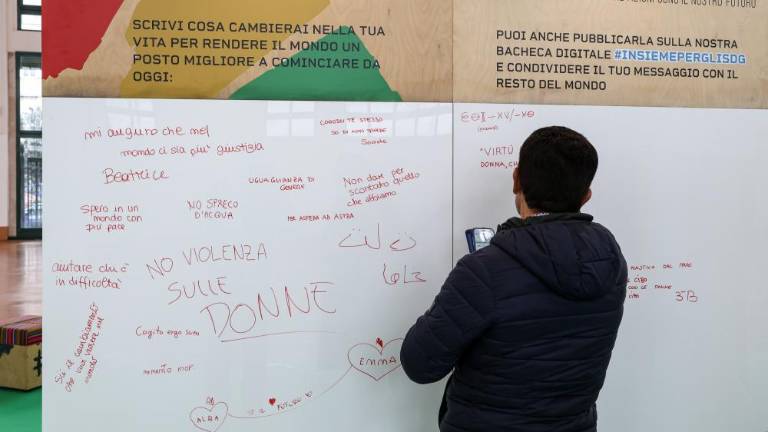 SCRIVI COSA CAMBIERAI NELLA TUA
VITA PER RENDERE IL MONDO UN
POSTO MIGLIORE A COMINCIARE DA
OGGI:
NOSTRO FUTURO
PUOI ANCHE PUBBLICARLA SULLA NOSTRA
BACHECA DIGITALE #INSIEMEPERGLISDG
E CONDIVIDERE IL TUO MESSAGGIO CON IL
RESTO DEL MONDO
mi auguro che nel
mondo ci sia più giustizia
Beatrice
TE STESSO
SO DI NON SAPERE
Socrate
UGUAGLIANZA DI
GENERE
Non dare per
scontato quello
che abbiamo
Spero in un
mondo con
più pace
NO SPRECO
D'ACQUA
PER ASPERA AD ASTRA
aiutare chi è
in difficoltà
NO VIOLENZA
SULLE
DONNE
Sii il cambiamento
che vuoi vedere nel
mondo
Cogito ergo sum
memento mori
ALBA
FUTURO
EMMA
"VIRTÙ
DONNA,
3B